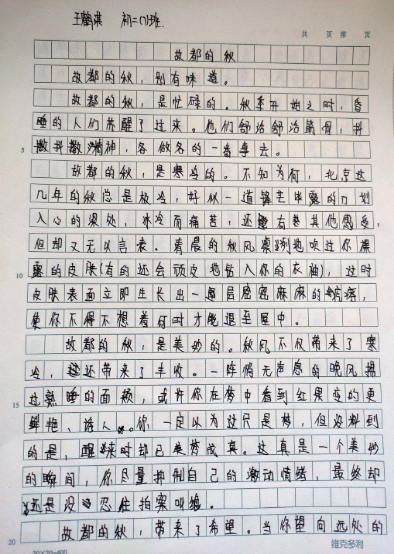 王麟祺 初二(1)班
共 页 第 页
故都的秋
故都的秋，别有味道。
故都的秋，是忙碌的。秋季开始之时，昏
睡的人们苏醒了过来。他们舒活舒活筋骨，抖
5
擞抖擞精神，各做各的一番事去。
故都的秋，是寒冷的。不知为何，北京这
几年的秋总是极冷，好似一道锋芒毕露的刀划
入心的深处，冰冷而痛苦，还夹有些其他感受，
但却又无以言表。清晨的秋风凛冽地吹过你裸
10
露的皮肤(有的还会顽皮地钻入你的衣袖)，这时
皮肤表面立即生长出一层层密密麻麻的疙瘩，
使你不得不想着何时才能退至屋中。
故都的秋，是美妙的。秋风不仅带来了寒
冷，还带来了丰收。一阵悄无声息的晚风拂
15
过熟睡的面颊，或许你在梦中看到红果变的更
鲜艳、诱人。你一定以为这只是梦，但没料到
的是，醒来时却已美梦成真。这真是一个美妙
的瞬间，你尽量抑制自己的激动情绪，最终却
还是没忍住拍案叫绝。
20
故都的秋，带来了希望。当你望向远处的
20×20=400
维克多利